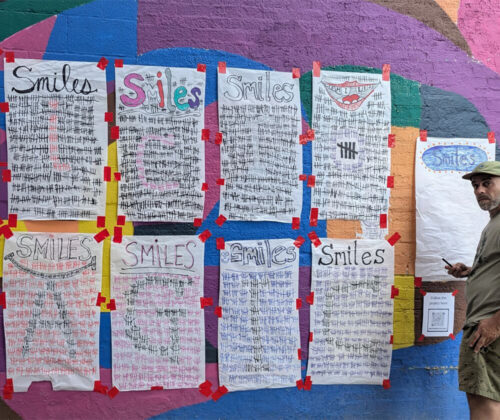 Smiles
Smiles
Smiles
Smiles
C
SMILES
SMILES
Smiles
Smiles
A